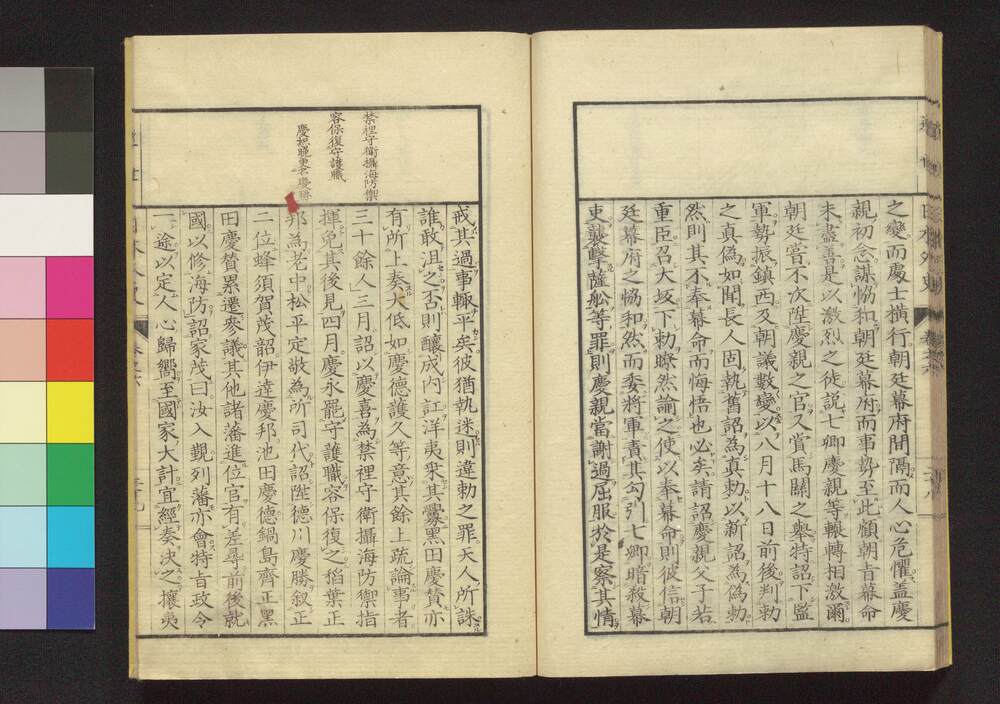 之變而處士橫行朝廷幕府間隔而人心危懼蓋慶
親初念謀恊和朝廷幕府而事勢至此顧朝旨幕命
未盡善是以激烈之徒説七卿慶親等輾轉相激爾
朝廷當不次陞慶親之官又賞馬關之舉特詔下監
軍勢振鎮西及朝議數變以八月十八日前後判勅
之真僞如聞長人固執舊詔為真勅以新詔為僞勅
然則其不奉幕命而悔悟也必矣請詔慶親父子若
重臣召大坂下勅瞭然諭之使以奉幕命則彼信朝
廷幕府之恊和然而委將軍責其勾引七卿暗殺幕
吏襲擊薩船等罪則慶親當謝過屈服於是察其情
禁裡守衛攝海防禦
容保復守護職
戒其過事輙平矣彼猶執迷則違勅之罪天人所誅
誰敢沮之否則釀成内訌洋夷乘其釁黑田慶賛亦
有所上奏大低如慶德護久等意其餘上疏論事者
三十餘人三月詔以慶喜為禁裡守衛攝海防禦指
揮免其後見四月慶永罷守護職容保復之稻葉正
邦為老中松平定敬為所司代詔陞德川慶勝叙正
二位蜂須賀茂韶伊達慶邦池田慶德鍋島齊正黑
田慶賛累遷參議其他諸藩進位官有差尋前後就
國以修海防詔家茂曰汝入覲列藩亦會特旨政令
一途以定人心歸嚮至國家大計宜經奏決之攘夷